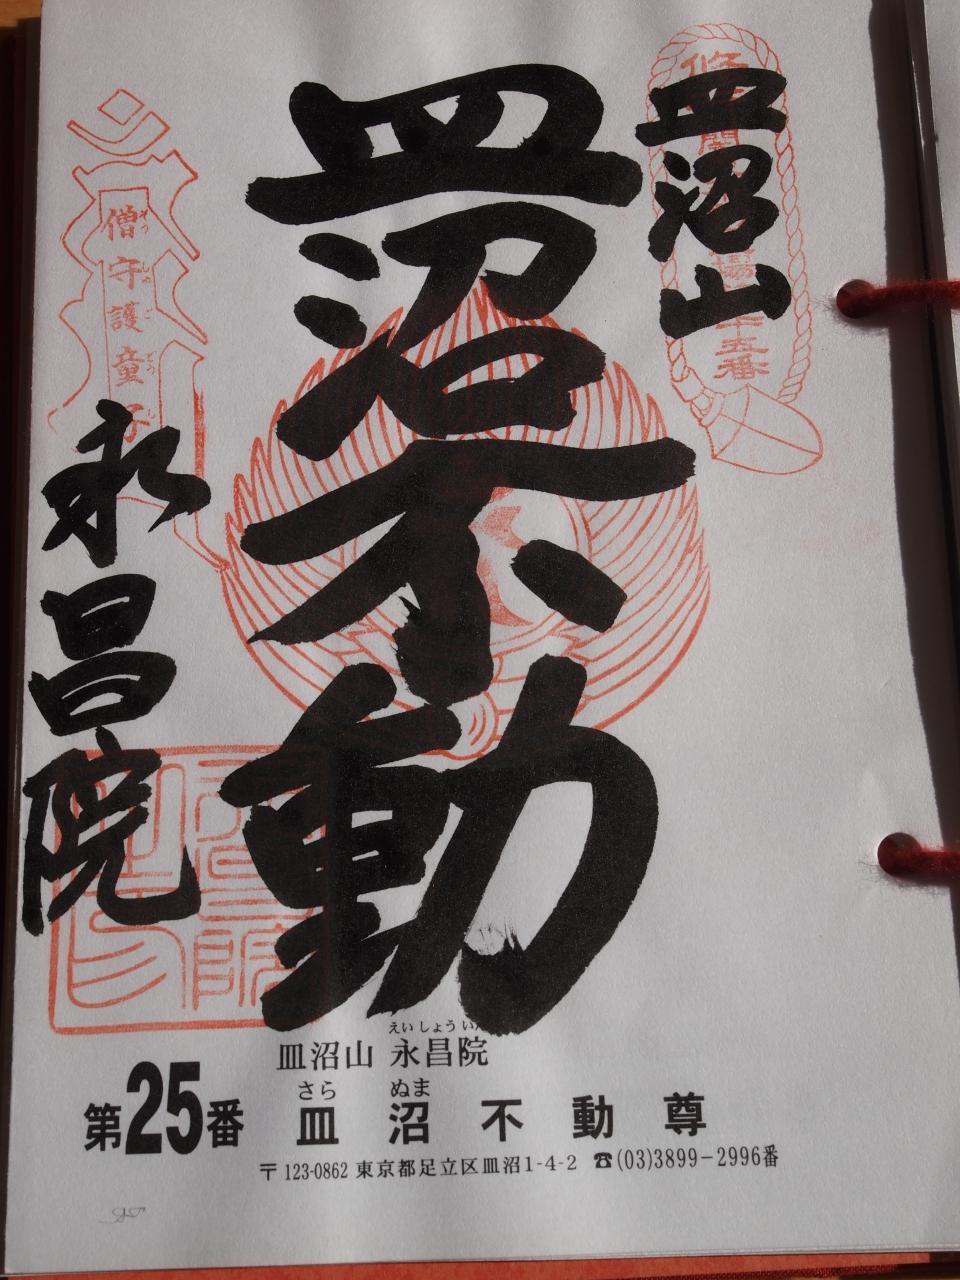 皿沼山
皿沼不動
永昌院
僧守護童子
そうしゅごどうじ
十五番
えいしょういん
皿沼山 永昌院
さら ぬま
第25番 皿沼不動尊
〒123-0862 東京都足立区皿沼1-4-2 ☎(03)3899-2996番